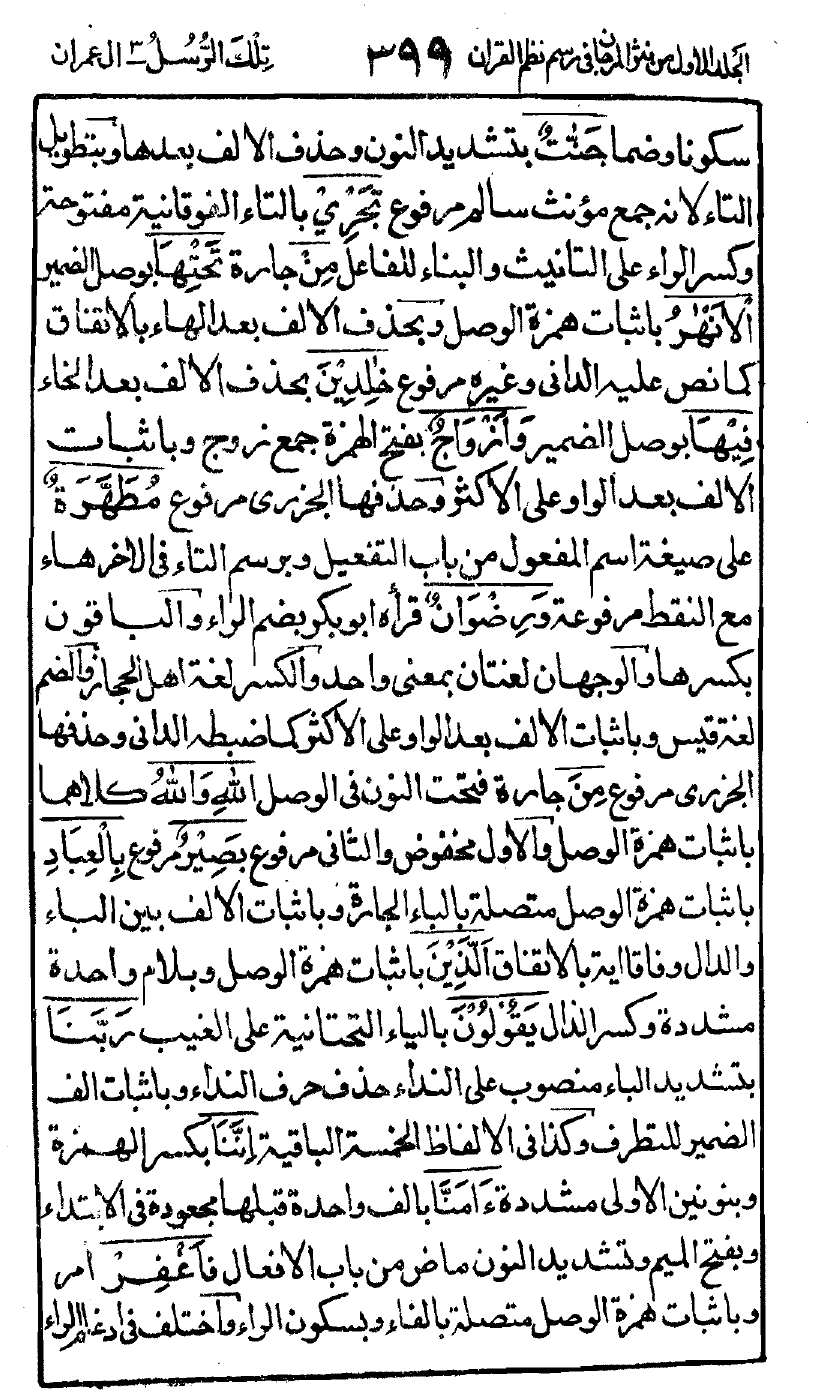 الجلد الاول من نثر المرجان فى رسم نظم القران ٣٩٩ تِلْكَ الرُّسُلُ ٣ ال عمران
سكونا وضما جَنّٰتٌ بتشديد النون وحذف الالف بعدها وبتطويل
التاء لانه جمع مؤنث سالم مرفوع تَجْرِيْ بالتاء الفوقانية مفتوحة
وكسر الراء على التانيث والبناء للفاعل مِنْ جارة تَحْتِهَا بوصل الضمير
اْلاَنْهٰرُ باثبات همزة الوصل وبحذف الالف بعد الهاء بالاتفاق
كما نص عليه الدانى وغيره مرفوع خٰلِدِيْنَ بحذف الالف بعد الخاء
فِيْهَا بوصل الضمير وَاَزْوَاجٌ بفتح الهمزة جمع زوج وباثبات
الالف بعد الواو على الاكثر وحذفها الجزرى مرفوع مُطَهَّرَةٌ
على صيغة اسم المفعول من باب التفعيل وبرسم التاء فى الاخر هاء
مع النقط مرفوعة وَرِضْوَانٌ قرأه ابو بكر بضم الراء والباقون
بكسرها والوجهان لغتان بمعنى واحد والكسر لغة اهل الحجاز والضم
لغة قيس وباثبات الالف بعد الواو على الاكثر كما ضبطه الدانى وحذفها
الجزرى مرفوع مِنَ جارة فتحت النون فى الوصل اللهِ وَاللهُ كلاهما
باثبات همزة الوصل والاول مخفوض والثانى مرفوع بَصِيْرٌ مرفوع بِالْعِبَادِ
باثبات همزة الوصل متصلة بالباء الجارة وباثبات الالف بين الباء
والدال وفاقا اية بالاتفاق اَلَّذِيْنَ باثبات همزة الوصل وبلام واحدة
مشددة وكسر الذال يَقُوْلُوْنَ بالياء التحتانية على الغيب رَبَّنَا
بتشديد الباء منصوب على النداء حذف حرف النداء وباثبات الف
الضمير للتطرف وكذا فى الالفاظ الخمسة الباقية اِنَّنَا بكسر الهمزة
وبنونين الاولى مشددة ءَامَنَّا بالف واحدة قبلها مجعودة فى الابتداء
وبفتح الميم وتشديد النون ماض من باب الافعال فَاغْفِرْ امر
وباثبات همزة الوصل متصلة بالفاء وبسكون الراء واختلف فى ادغام الراء